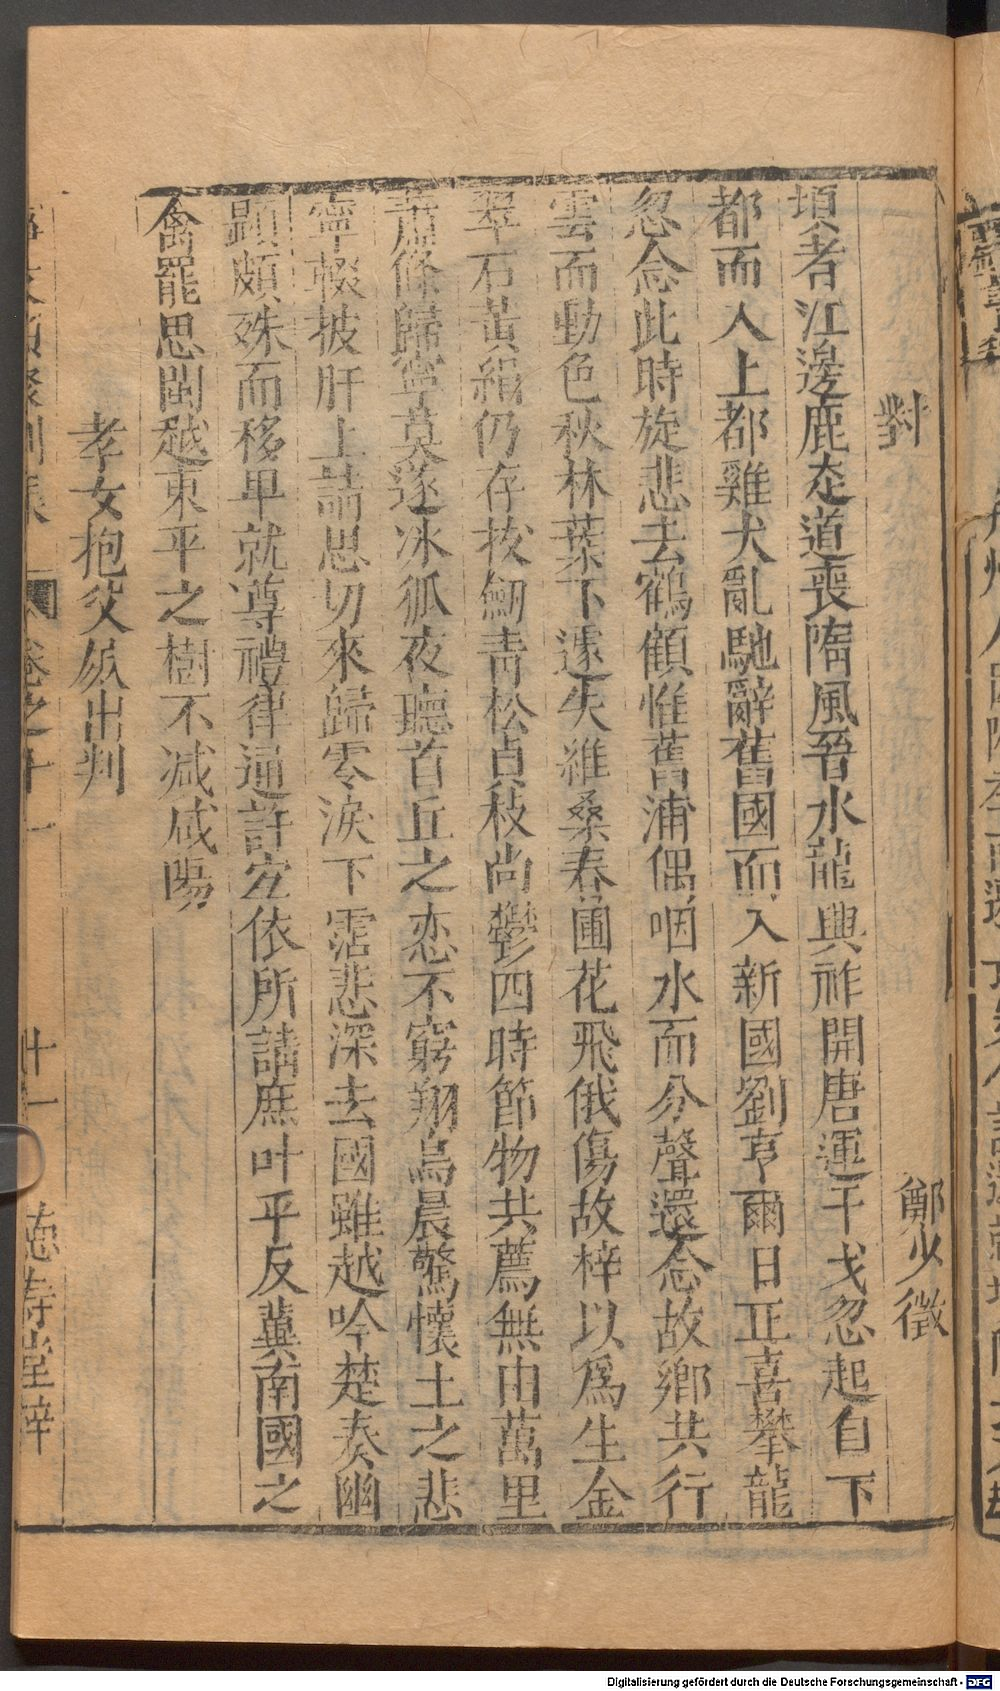 對
鄭少徵
頃者江邊鹿走道喪隋風晉水龍興祚開唐運干戈忽起自下
都而入上都雞犬亂馳辭舊國而入新國劉亨爾日正喜攀龍
忽念此時旋悲去鶴顧惟舊浦偶咽水而分聲還念故鄉共行
雲而動色秋林葉下遽失維桑春圃花飛俄傷故梓以爲生金
翠石黃絹仍存挍劒青松貞枝尚鬱四時節物共薦無由萬里
蕭條歸寧莫遂冰狐夜聽首丘之恋不窮翔鳥晨驚懷土之悲
寧輟披肝上請思切來歸零淚下霑悲深去國雖越吟楚奏幽
顯頗殊而移卑就尊禮律通許宐依所請庶叶平反冀南國之
禽罷思閩越東平之樹不減咸陽
孝女抱父屍出判
卷之十一
廿一
德壽堂梓
Digitalisierung gefördert durch die Deutsche Forschungsgemeinschaft - DFG